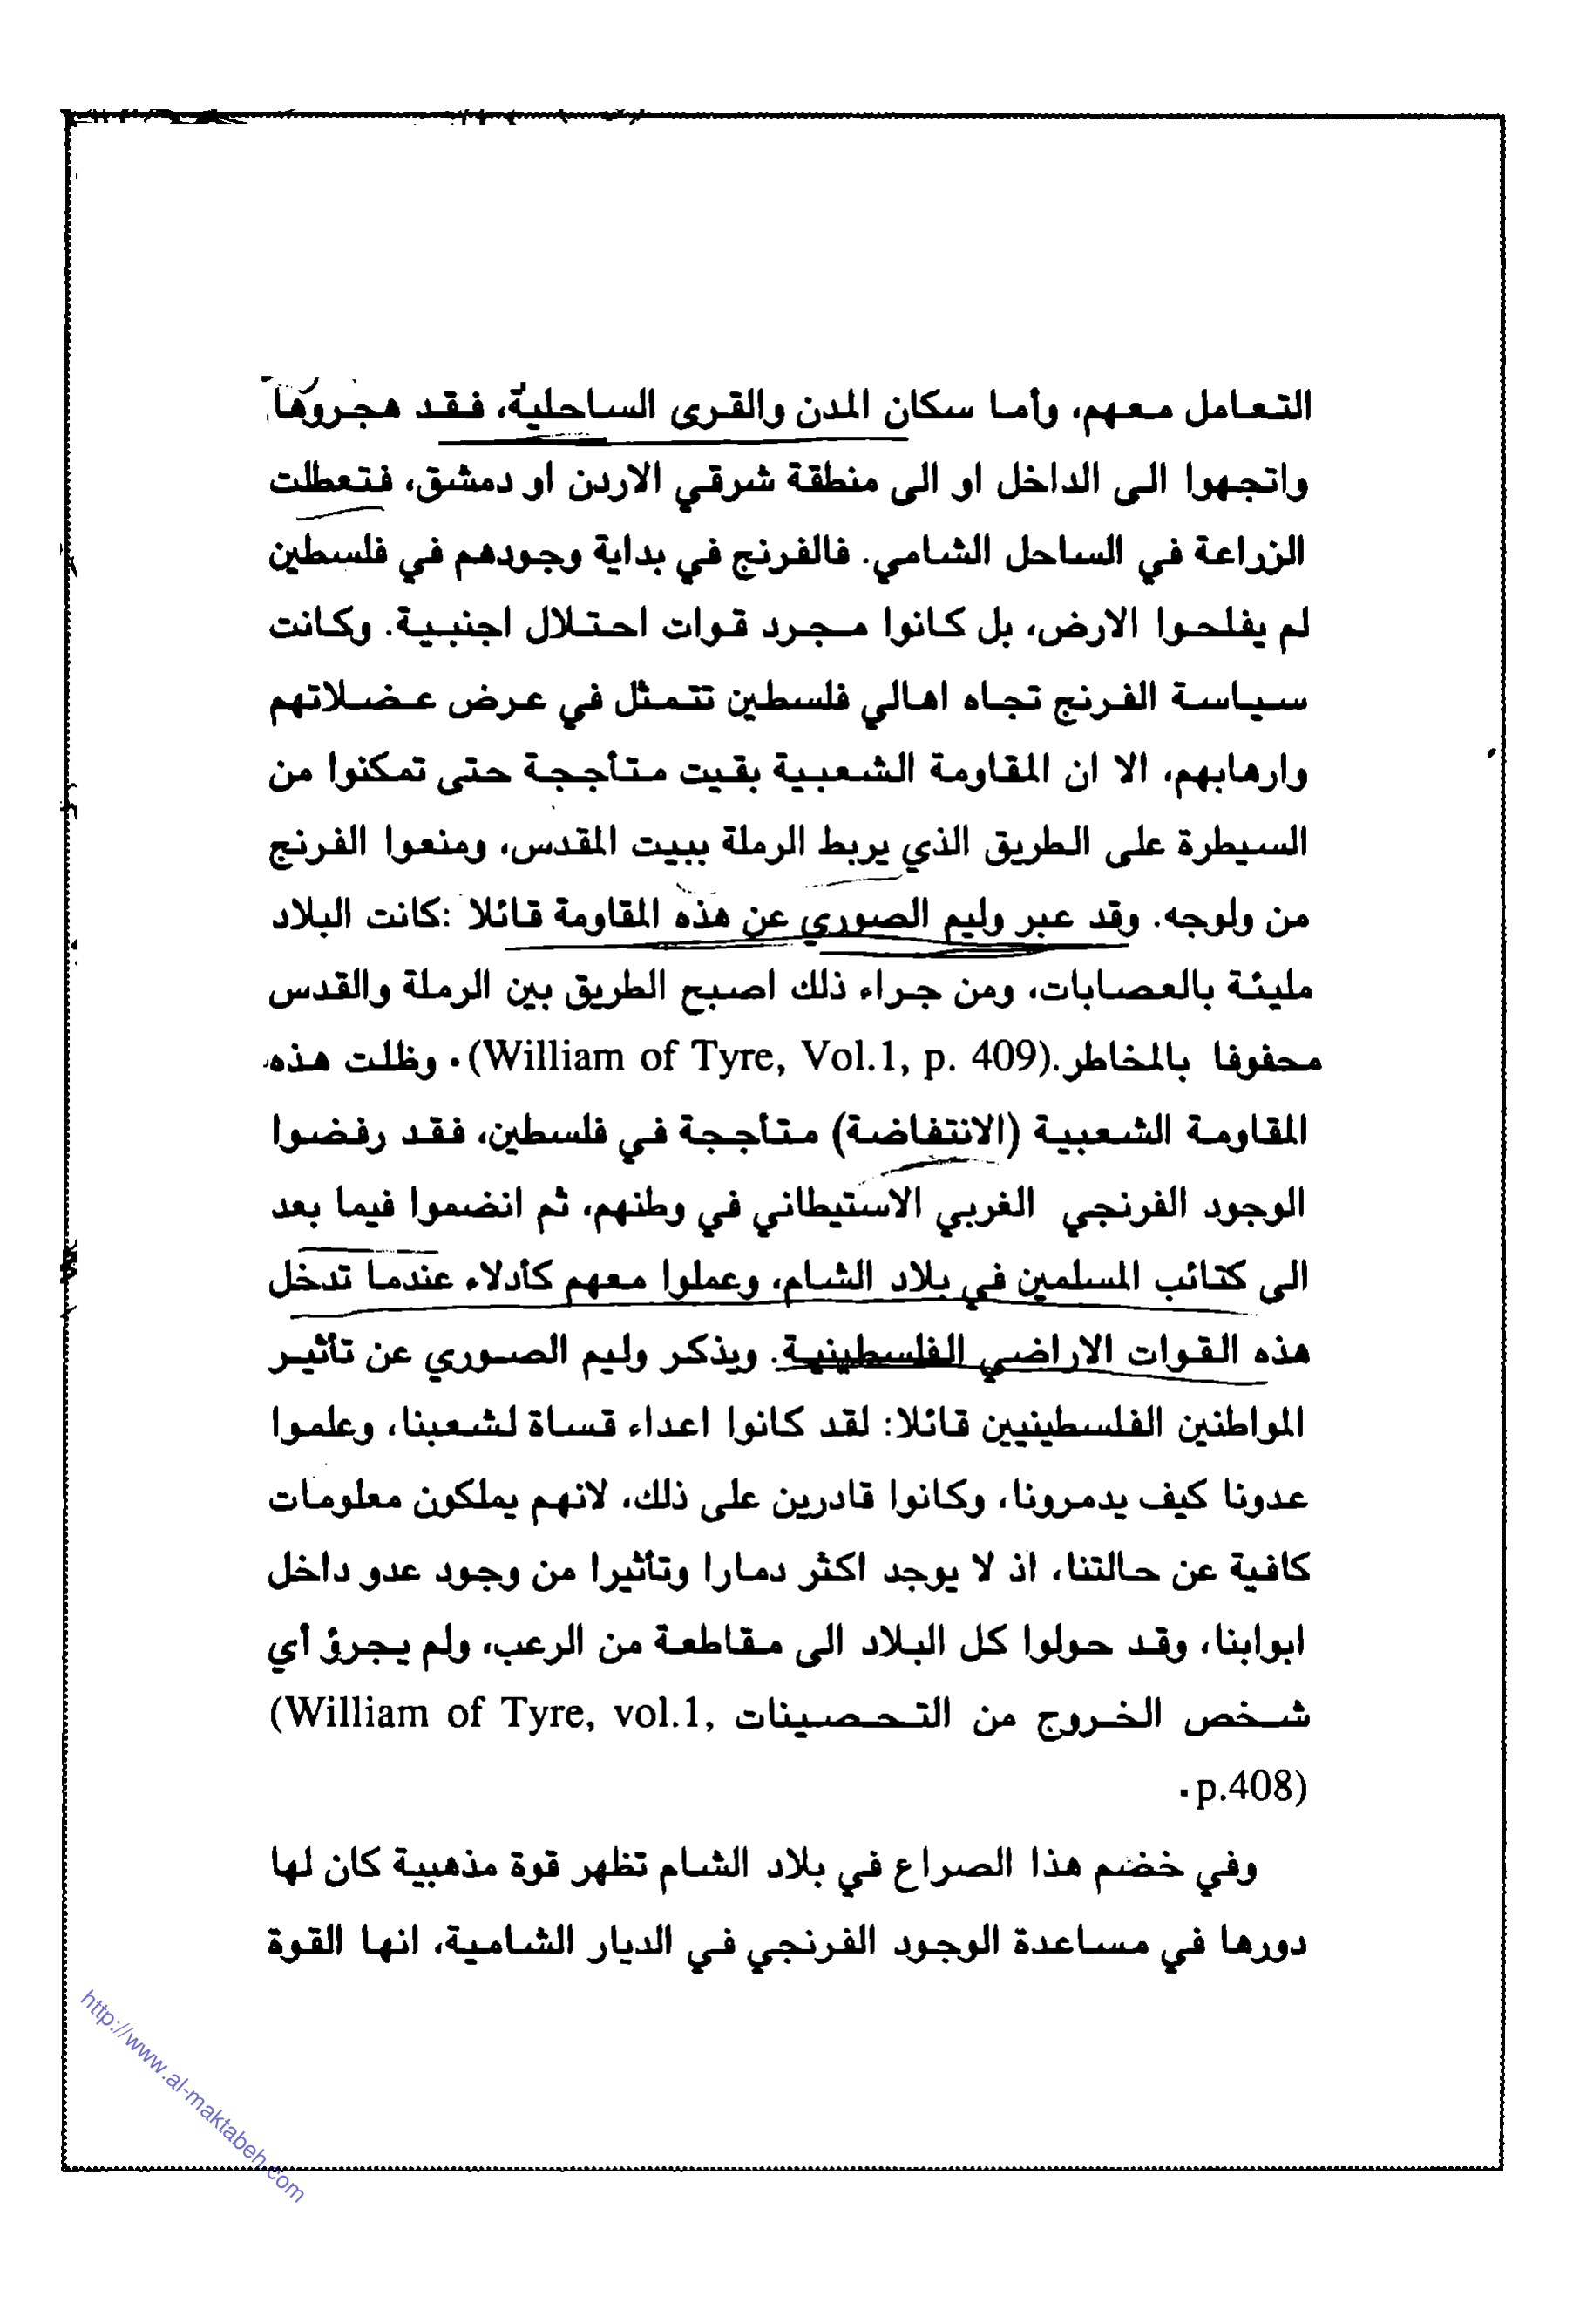 التعامل معهم، وأما سكان المدن والقرى الساحلية، فقد هجروها
واتجهوا الى الداخل او الى منطقة شرقي الاردن او دمشق، فتعطلت
الزراعة في الساحل الشامي. فالفرنج في بداية وجودهم في فلسطين
لم يفلحوا الارض، بل كانوا مجرد قوات احتلال اجنبية. وكانت
سياسة الفرنج تجاه اهالي فلسطين تتمثل في عرض عضلاتهم
وارهابهم، الا ان المقاومة الشعبية بقيت متأججة حتى تمكنوا من
السيطرة على الطريق الذي يربط الرملة ببيت المقدس، ومنعوا الفرنج
من ولوجه. وقد عبر وليم الصوري عن هذه المقاومة قائلا :كانت البلاد
مليئة بالعصابات، ومن جراء ذلك اصبح الطريق بين الرملة والقدس
محفوفا بالمخاطر.(William of Tyre, Vol.1, p. 409). وظلت هذه
المقاومة الشعبية (الانتفاضة) متأججة في فلسطين، فقد رفضوا
الوجود الفرنجي الغربي الاستيطاني في وطنهم، ثم انضموا فيما بعد
الى كتائب المسلمين في بلاد الشام، وعملوا معهم كأدلاء عندما تدخل
هذه القوات الاراضي الفلسطينية. ويذكر وليم الصوري عن تأثير
المواطنين الفلسطينيين قائلا: لقد كانوا اعداء قساة لشعبنا، وعلموا
عدونا كيف يدمرونا، وكانوا قادرين على ذلك، لانهم يملكون معلومات
كافية عن حالتنا، اذ لا يوجد اكثر دمارا وتأثيرا من وجود عدو داخل
ابوابنا، وقد حولوا كل البلاد الى مقاطعة من الرعب، ولم يجرؤ أي
شخص الخروج من التحصينات (William of Tyre, vol.1,
p.408).
وفي خضم هذا الصراع في بلاد الشام تظهر قوة مذهبية كان لها
دورها في مساعدة الوجود الفرنجي في الديار الشامية، انها القوة
http://www.al-maktabeh.com